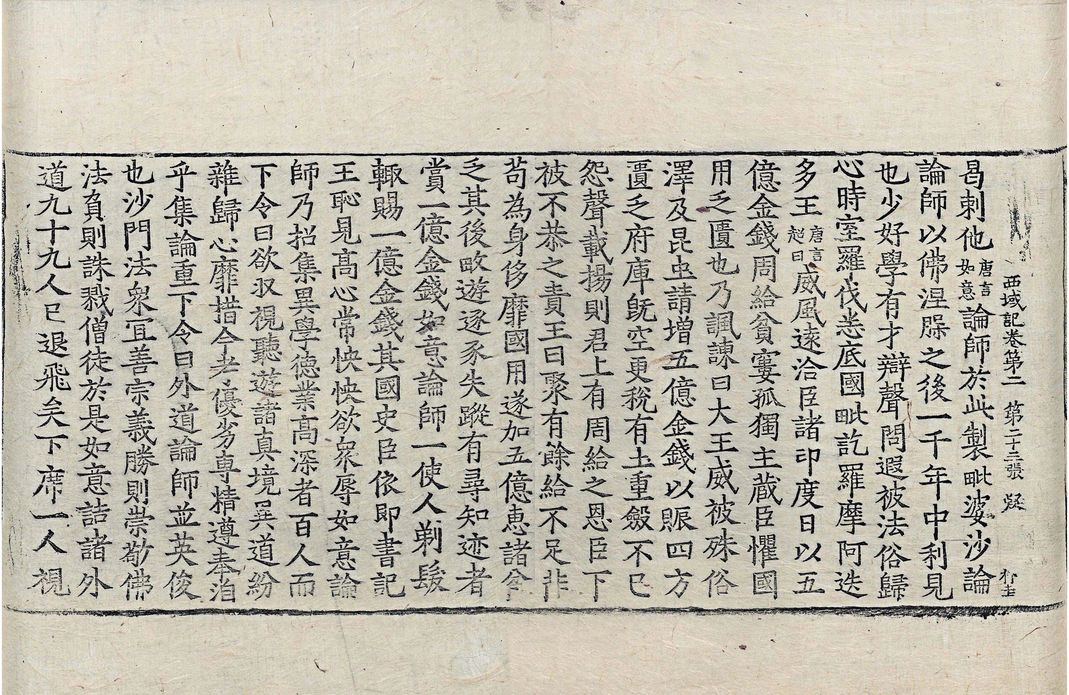 西域記卷第二 第二十三張 疑
曷剌他唐言如意論師於此製毗婆沙論
論師以佛涅槃之後一千年中利見
也少好學有才辯聲問遐被法俗歸
心時室羅伐悉底國毗訖羅摩阿迭
多王唐言超日威風遠洽臣諸印度日以五
億金錢周給貧窶孤獨主藏臣懼國
用乏匱也乃諷諫曰大王威被殊俗
澤及昆虫請增五億金錢以賑四方
匱乏府庫旣空更稅有土重斂不已
怨聲載揚則君上有周給之恩臣下
被不恭之責王曰聚有餘給不足非
苟為身侈靡國用遂加五億惠諸貧
乏其後畋遊逐豕失蹤有尋知迹者
賞一億金錢如意論師一使人剃髮
輒賜一億金錢其國史臣依即書記
王恥見高心常怏怏欲衆辱如意論
師乃招集異學德業高深者百人而
下令曰欲収視聽遊諸真境異道紛
雜歸心靡措今考優劣專精遵奉洎
乎集論重下令曰外道論師並英俊
也沙門法衆宜善宗義勝則崇敬佛
法負則誅戮僧徒於是如意詰諸外
道九十九人已退飛矣下席一人視